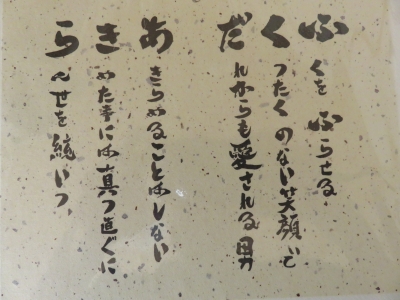 ふくをふらせる
くったくのない笑顔で
だれからも愛される男
あきらめることはしない
きめた事には真っ直ぐに
らんせを統いつ